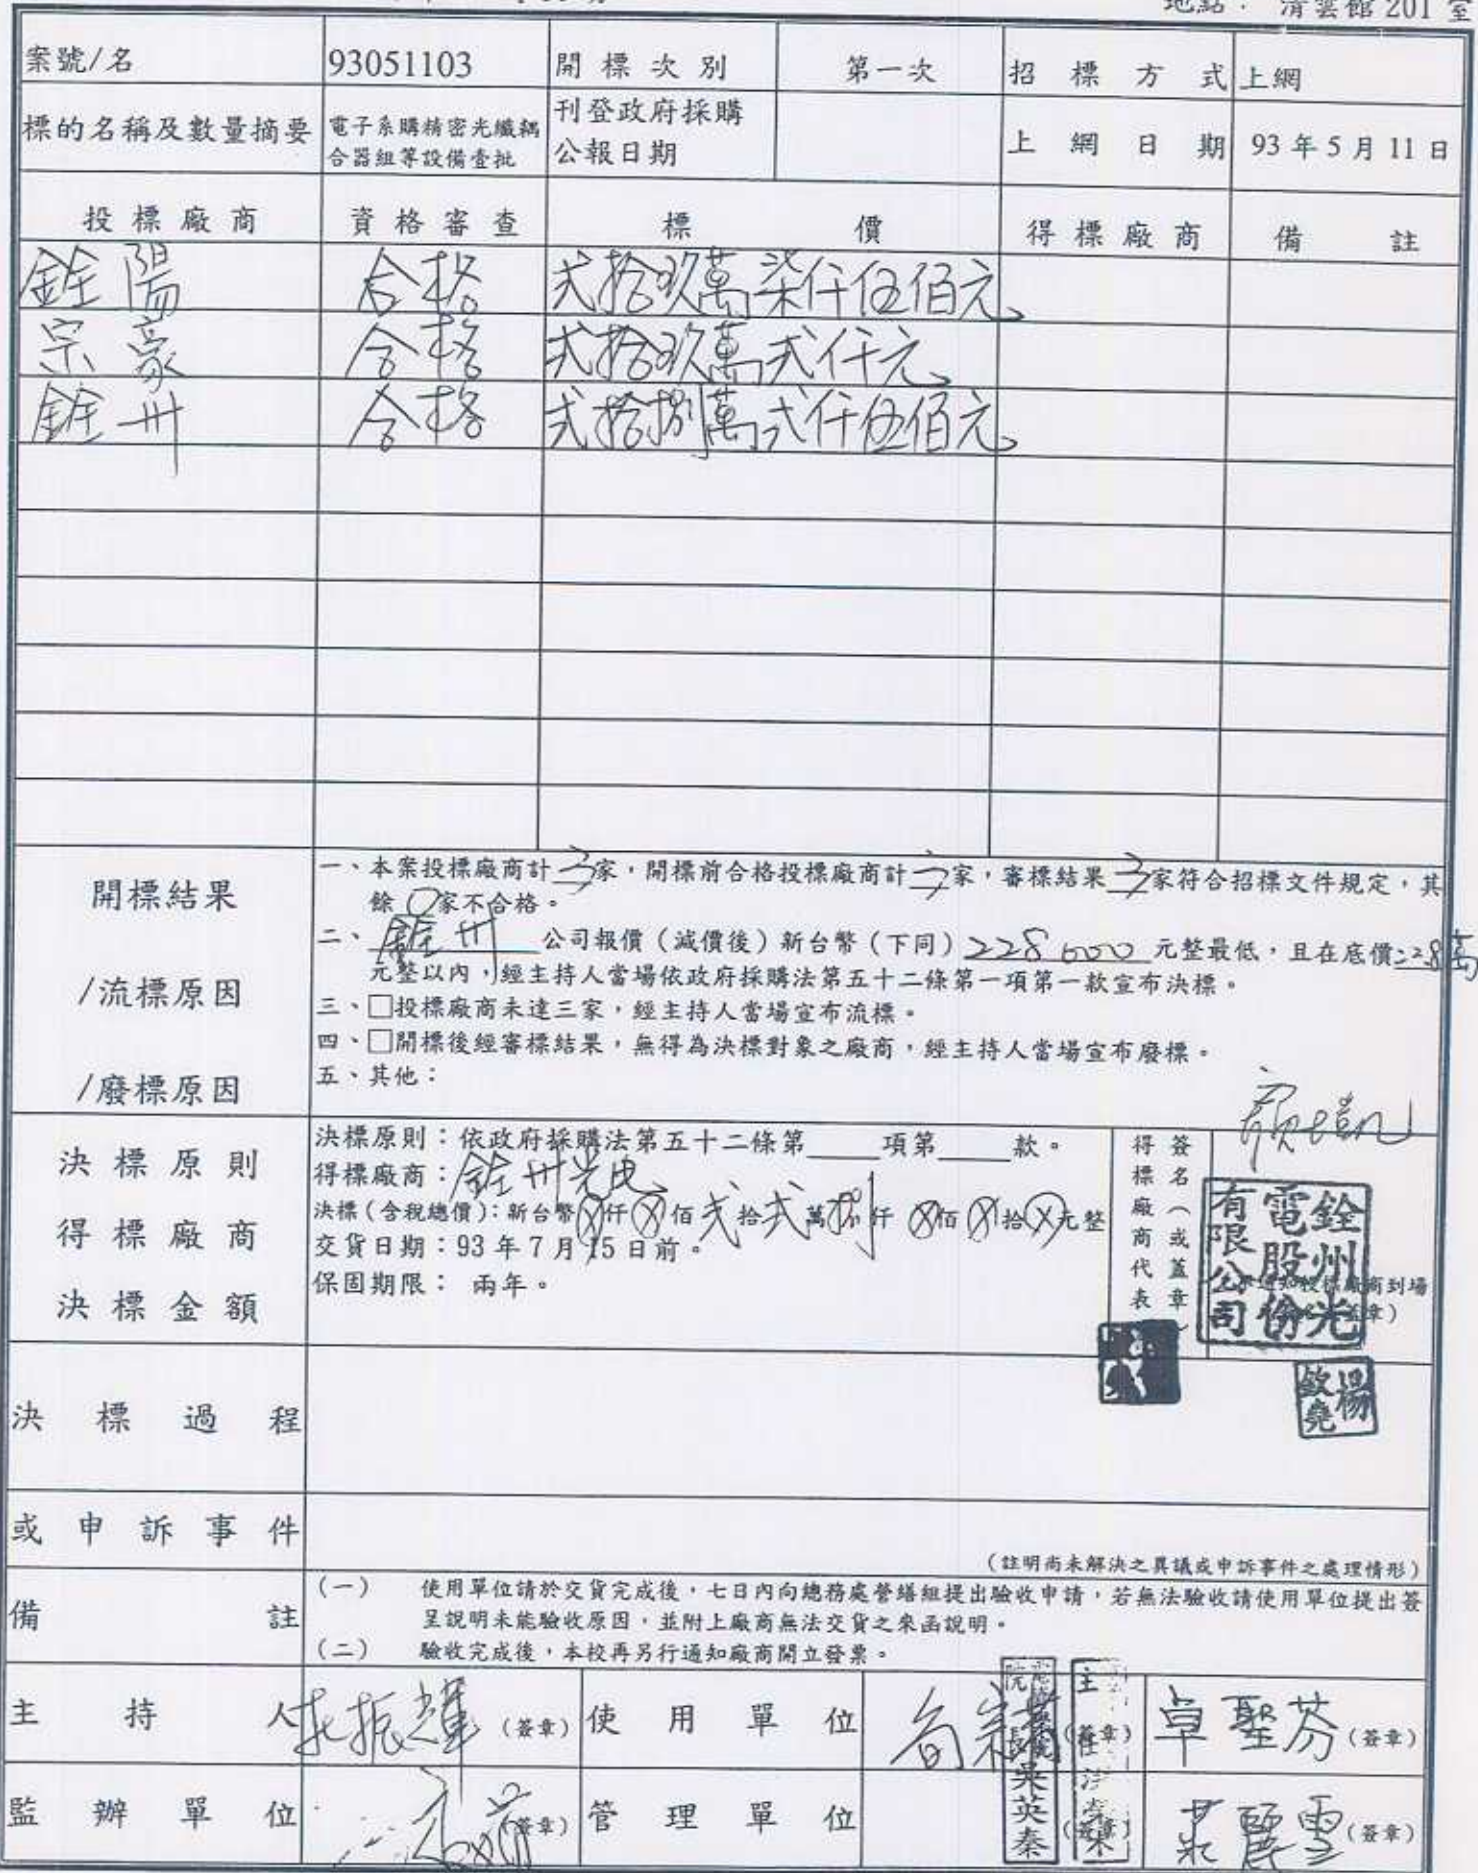 地點： 清雲館 201 室
案號/名 93051103 開標次別 第一次 招標方式 上網
標的名稱及數量摘要 電子系購精密光纖耦合器組等設備壹批 刊登政府採購公報日期 上網日期 93 年 5 月 11 日
投標廠商 資格審查 標價 得標廠商 備註
銓陽 合格 弍拾玖萬柒仟伍佰元
宗豪 合格 弍拾玖萬弍仟元
銓州 合格 弍拾捌萬弍仟伍佰元
開標結果
/流標原因
/廢標原因
一、本案投標廠商計 3 家，開標前合格投標廠商計 3 家，審標結果 3 家符合招標文件規定，其
餘 0 家不合格。
二、 銓州 公司報價（減價後）新台幣（下同）228000 元整最低，且在底價 228萬
元整以內，經主持人當場依政府採購法第五十二條第一項第一款宣布決標。
三、□投標廠商未達三家，經主持人當場宣布流標。
四、□開標後經審標結果，無得為決標對象之廠商，經主持人當場宣布廢標。
五、其他：
決標原則
得標廠商
決標金額
決標原則：依政府採購法第五十二條第____項第____款。
得標廠商：銓州光电
決標(含稅總價)：新台幣Ⓧ仟Ⓧ佰弍拾弍萬捌仟Ⓧ佰Ⓧ拾Ⓧ元整
交貨日期：93 年 7 月 15 日前。
保固期限： 兩年。
得標廠商代表
簽名（或蓋章）
銓州光電股份有限公司
楊欽堯
決標過程
或申訴事件
（註明尚未解決之異議或申訴事件之處理情形）
備註
(一) 使用單位請於交貨完成後，七日內向總務處營繕組提出驗收申請，若無法驗收請使用單位提出簽
呈說明未能驗收原因，並附上廠商無法交貨之來函說明。
(二) 驗收完成後，本校再另行通知廠商開立發票。
主持人 振輝 (簽章) 使用單位 (簽章) 卓聖芬 (簽章)
院長吳英秦
主任
監辦單位 (簽章) 管理單位 (簽章) 麗雪 (簽章)